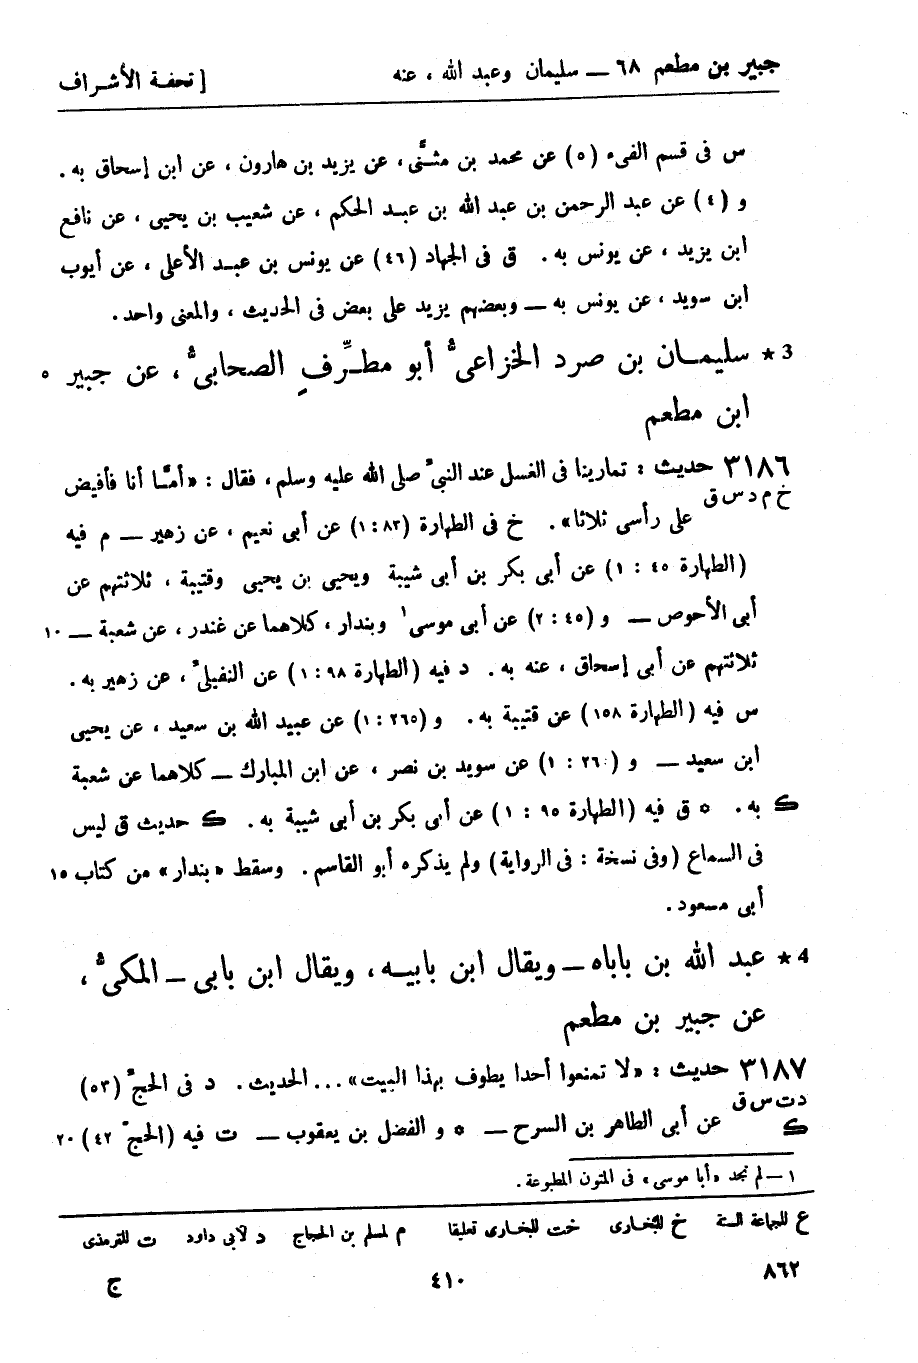 جبير بن مطعم ٦٨ — سليمان وعبد الله ، عنه [ تحفة الأشراف
س فى قسم الفىء (٥) عن محمد بن مثنَّى، عن يزيد بن هارون ، عن ابن إسحاق به .
و (٤) عن عبد الرحمن بن عبد الله بن عبد الحكم ، عن شعيب بن يحيى ، عن نافع
ابن يزيد ، عن يونس به . ق فى الجهاد (٤٦) عن يونس بن عبد الأعلى ، عن أيوب
ابن سويد ، عن يونس به — وبعضهم يزيد على بعض فى الحديث ، والمعنى واحد .
3 ★ سليمان بن صرد الخزاعىُّ أبو مطرِّفٍ الصحابىُّ ، عن جبير ٥
ابن مطعم
٣١٨٦ حديث : تمارينا فى الغسل عند النبىّ صلى الله عليه وسلم ، فقال : «أمَّا أنا فأفيض
خ م د س ق على رأسى ثلاثا» . خ فى الطهارة (٨٣ : ١) عن أبى نعيم ، عن زهير — م فيه
(الطهارة ٤٥ : ١) عن أبى بكر بن أبى شيبة ويحيى بن يحيى وقتيبة ، ثلاثتهم عن
أبى الأحوص — و (٤٥ : ٢) عن أبى موسى ١ وبندار ، كلاهما عن غندر ، عن شعبة — ١٠
ثلاثتهم عن أبى إسحاق ، عنه به . د فيه (الطهارة ٩٨ : ١) عن النفيلىّ ، عن زهير به .
س فيه (الطهارة ١٥٨) عن قتيبة به . و (٢٦٥ : ١) عن عبيد الله بن سعيد ، عن يحيى
ابن سعيد — و (٢٦ : ١) عن سويد بن نصر ، عن ابن المبارك — كلاهما عن شعبة
ك به . * ق فيه (الطهارة ٩٥ : ١) عن أبى بكر بن أبى شيبة به . ك حديث ق ليس
فى السماع (وفى نسخة : فى الرواية) ولم يذكره أبو القاسم . وسقط «بندار» من كتاب ١٥
أبى مسعود .
4 ★ عبد الله بن باباه — ويقال ابن بابيه ، ويقال ابن بابى — المكىُّ ،
عن جبير بن مطعم
٣١٨٧ حديث : «لا تمنعوا أحدا يطوف بهذا البيت» ... الحديث . د فى الحجّ (٥٣)
د ت س ق عن أبى الطاهر بن السرح — * و الفضل بن يعقوب — ت فيه (الحجّ ٤٢) ٢٠
ك
١ — لم نجد «أبا موسى» فى المتون المطبوعة .
ع للجماعة الستة خ للبخارى خت للبخارى تعليقا م لمسلم بن الحجاج د لأبى داود ت للترمذى
٨٦٢ ٤١٠ ج